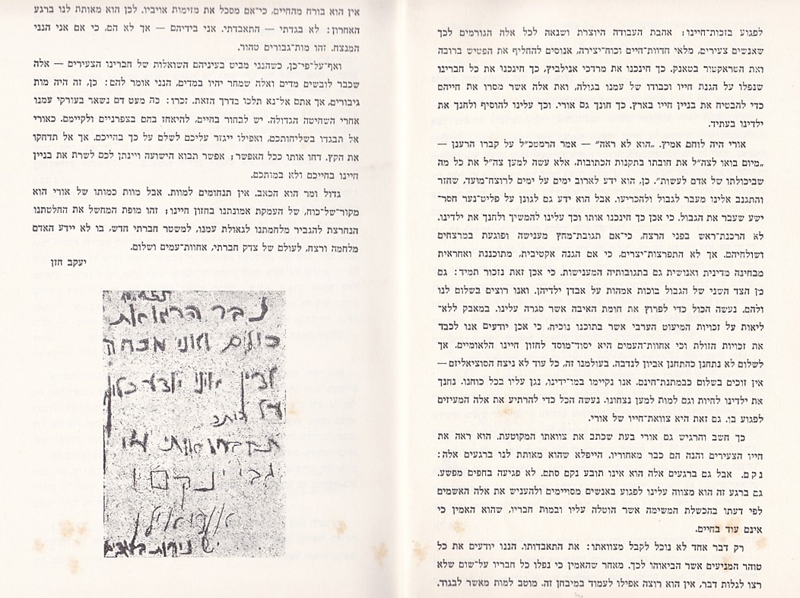 לפגוע בזכות־חיינו: אהבת העבודה היוצרת ושנאה לכל אלה הגורמים לכך
שאנשים צעירים, מלאי חדוות־חיים וכוח־יצירה, אנוסים להחליף את הפטיש ברובה
ואת הטראקטור בטאנק. כך חינכנו את מרדכי אנילביץ, כך חינכנו את כל חברינו
שנפלו על הגנת חייו וכבודו של עמנו בגולה, ואת אלה אשר מסרו את חייהם
כדי להבטיח את בניין חייו בארץ. כך חונך גם אורי. וכך עלינו להוסיף ולחנך את
ילדינו בעתיד.
אורי היה לוחם אמיץ. „הוא לא ראה” — אמר הרמטכ״ל על קברו הרענן —
„מיום בואו לצה״ל את חובתו בתקנות הכתובות, אלא עשה למען צה״ל את כל מה
שביכולתו של אדם לעשות”. כן, הוא ידע לארוב ימים על ימים לרוצח־מועד, שחזר
והתגנב אלינו מעבר לגבול ולהכריעו. אבל הוא ידע גם לגונן על פליט־נער חסר־
ישע שעבר את הגבול. כי אכן כך חינכנו אותו וכך עלינו להמשיך ולחנך את ילדינו.
לא הרכנת־ראש בפני הרצח, כי־אם תגובת־מחץ מענישה ופוגעת במרצחים
ושולחיהם. אך לא התפרצות־יצרים, כי אם הגנה אקטיבית, מתוכננת ואחראית
מבחינה מדינית ואנושית גם בתגובותיה המענישות. כי אכן זאת נזכור תמיד: גם
מן הצד השני של הגבול בוכות אמהות על אבדן ילדיהן. ואנו רוצים בשלום לנו
ולהם. נעשה הכול כדי לפרוץ את חומת האיבה אשר סגרה עלינו. במאבק ללא־
ליאות על זכויות המיעוט הערבי אשר בתוכנו נוכיח, כי אכן יודעים אנו לכבד
את זכויות הזולת וכי אחוות־העמים היא יסוד־מוסד לחזון חיינו הלאומיים. אך
לשלום לא נתחנן כהתחנן אביון לנדבה. בעולמנו זה, כל עוד לא ניצח הסוציאליזם —
אין זוכים בשלום כבמתנת־חינם. אנו נקיימו במו־ידינו, נגן עליו בכל כוחנו. נחנך
את ילדינו לחיות וגם למות למען נצחונו. נעשה הכל כדי להרתיע את אלה המעיזים
לפגוע בו. גם זאת היא צוואת־חייו של אורי.
כך חשב והרגיש גם אורי בעת שכתב את צוואתו המקוטעת. הוא ראה את
חייו הצעירים והנה הם כבר מאחוריו. הייפלא שהוא מאותת לנו ברגעים אלה:
נקם. אבל גם ברגעים אלה הוא אינו תובע נקם סתם. לא פגיעה בחפים מפשע.
גם ברגע זה הוא מצווה עלינו לפגוע באנשים מסויימים ולהעניש את אלה האשמים
לפי דעתו בהכשלת המשימה אשר הוטלה עליו ובמות חבריו, שהוא האמין כי
אינם עוד בחיים.
רק דבר אחד לא נוכל לקבל מצוואתו: את התאבדותו. הננו יודעים את כל
טוהר המניעים אשר הביאוהו לכך. מאחר שהאמין כי נפלו כל חבריו על־שום שלא
רצו לגלות דבר, אין הוא רוצה אפילו לעמוד במיבחן זה. מוטב למות מאשר לבגוד.
אין הוא בורח מהחיים, כי־אם מסכל את מזימות אויביו. לכן הוא מאותת לנו ברגע
האחרון: לא בגדתי — התאבדתי. אני בידיהם — אך לא הם, כי אם אני הנני
המנצח. זהו מות־גבורים טהור.
ואף־על־פי־כן, כשהנני מביט בעיניהם השואלות של חברינו הצעירים — אלה
שכבר לובשים מדים ואלה שמחר יהיו במדים, הנני אומר להם: כן, זה היה מות
גיבורים, אך אתם אל־נא תלכו בדרך הזאת. זכרו: כה מעט דם נשאר בעורקי עמנו
אחרי השחיטה הגדולה. יש לבחור בחיים, להיאחז בהם בצפרניים ולקיימם. כאורי
אל תבגדו בשליחותכם, ואפילו ייגזר עליכם לשלם על כך בחייכם. אך אל תדחקו
את הקץ. דחו אותו ככל האפשר; אפשר ותבוא הישועה ויינתן לכם לשרת את בניין
חיינו בחייכם ולא במותכם.
גדול ומר הוא הכאב. אין תנחומים למוות. אבל מוות כמותו של אורי הוא
מקור־של־כוח, של העמקת אמונתנו בחזון חיינו; זהו מופת המחשל את החלטתנו
הנחרצת להגביר מלחמתנו לגאולת עמנו, למשטר חברתי חדש, בו לא יידע האדם
מלחמה ורצח, לעולם של צדק חברתי, אחוות־עמים ושלום.
יעקב חזן